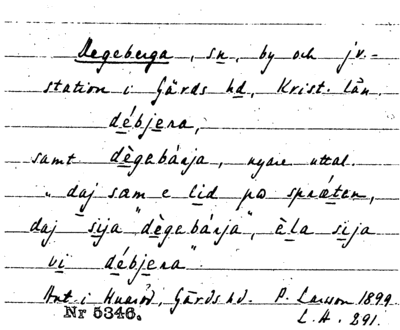 Degeberga, sn, by och jv.-
station i Gärds hd, Krist. län.
débjera,
samt dègabárja, nyare uttal.
"daj sam e lid pɷ sprǽten,
daj sija "dègabárja", èla sija
vi débjera"
Ant. i Huaröd, Gärds hd. P. Larsson 1899
Nr 5346. L.H. 291.